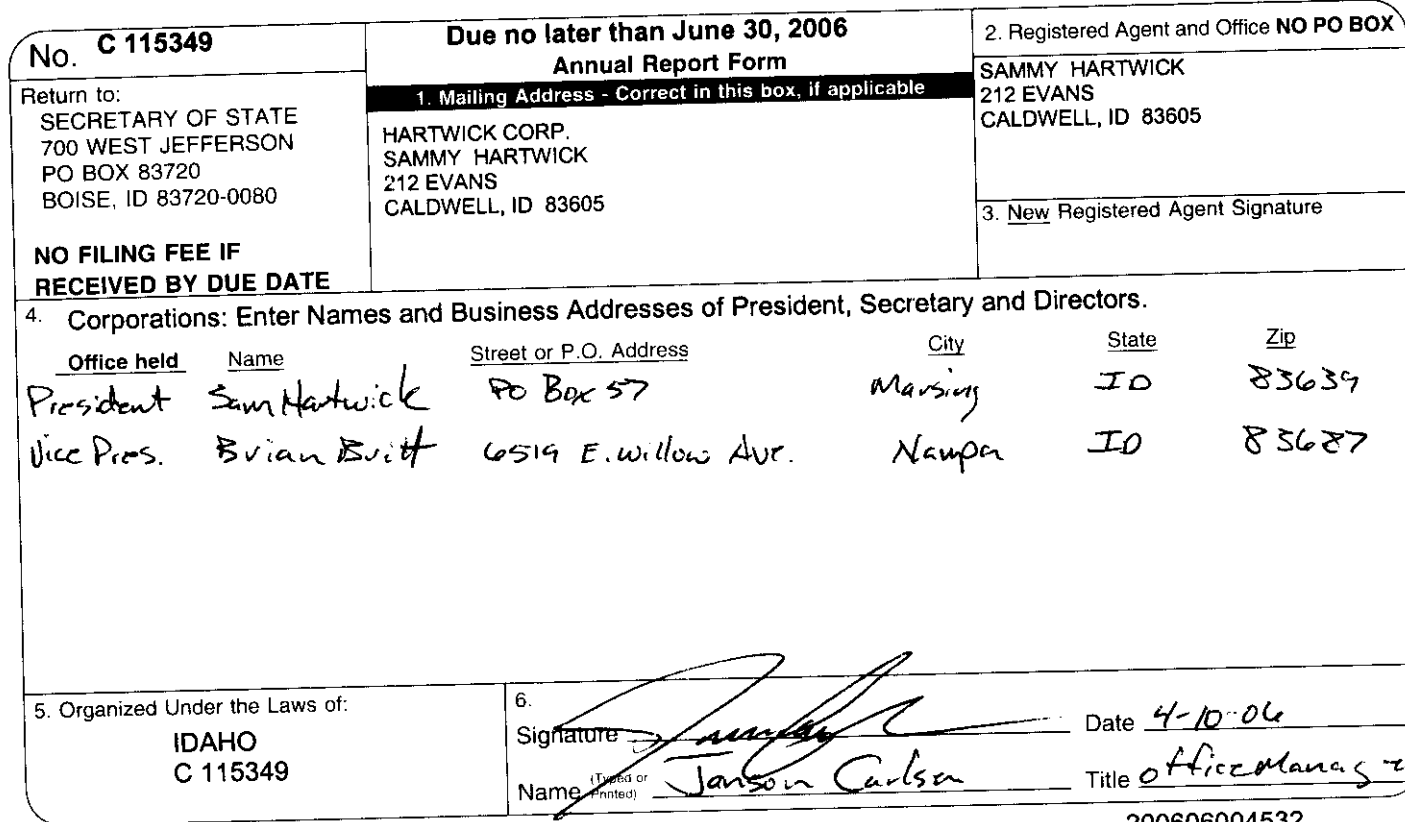 No. C 115349
Return to:
SECRETARY OF STATE
700 WEST JEFFERSON
PO BOX 83720
BOISE, ID 83720-0080
NO FILING FEE IF
RECEIVED BY DUE DATE
Due no later than June 30, 2006
Annual Report Form
1. Mailing Address - Correct in this box, if applicable
HARTWICK CORP.
SAMMY HARTWICK
212 EVANS
CALDWELL, ID 83605
2. Registered Agent and Office NO PO BOX
SAMMY HARTWICK
212 EVANS
CALDWELL, ID 83605
3. New Registered Agent Signature
4. Corporations: Enter Names and Business Addresses of President, Secretary and Directors.
Office held Name Street or P.O. Address City State Zip
President Sam Hartwick PO Box 57 Marsing ID 83639
Vice Pres. Brian Britt 6519 E. Willow Ave. Nampa ID 83687
5. Organized Under the Laws of:
IDAHO
C 115349
6.
Signature Date 4-10-06
Name (Typed or Printed) Janson Carlson Title Office Manage
200606004532